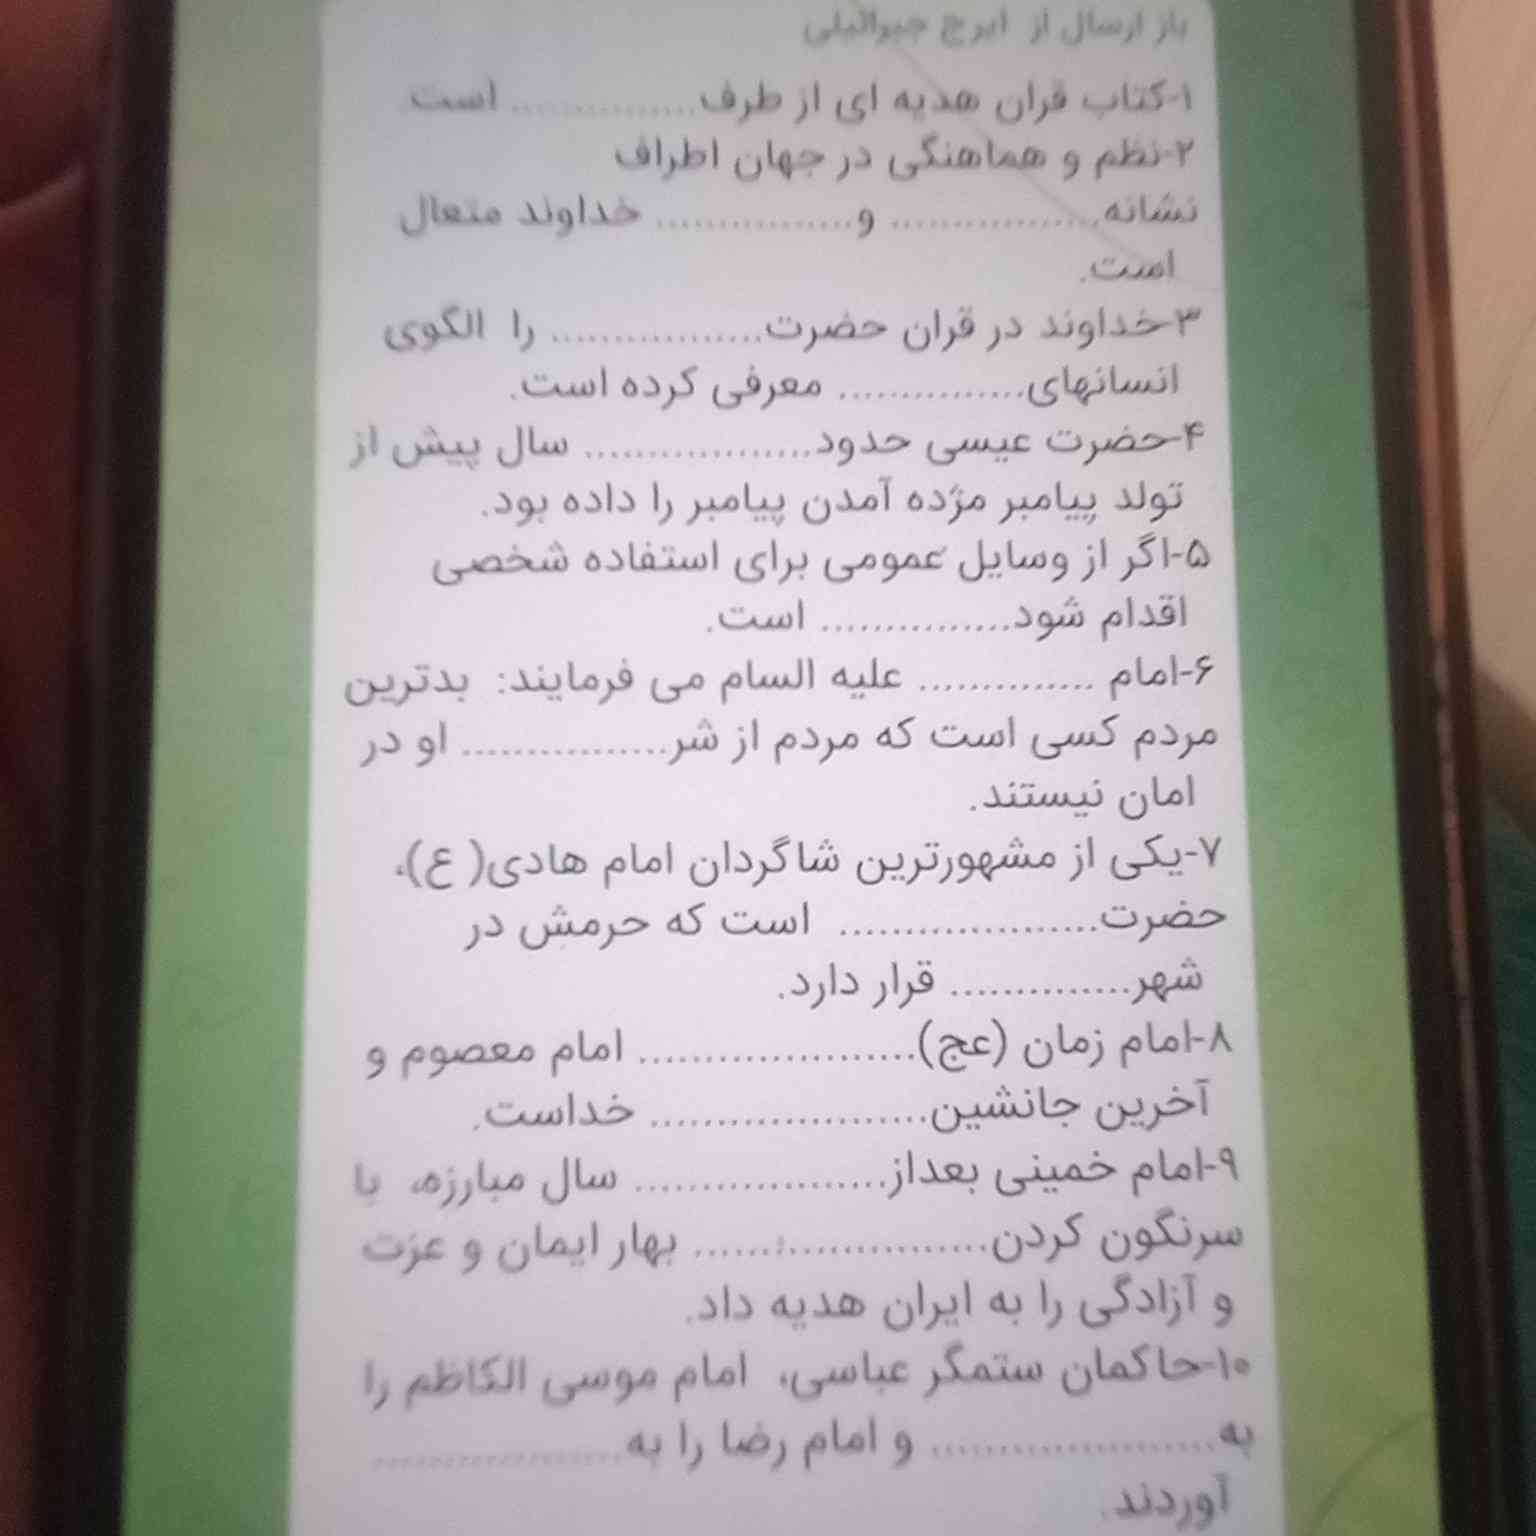 باز ارسال از ایرج جبرائیلی
۱-کتاب قران هدیه ای از طرف............... است.
۲-نظم و هماهنگی در جهان اطراف
نشانه................ و............... خداوند متعال
است.
۳-خداوند در قران حضرت................ را الگوی
انسانهای.............. معرفی کرده است.
۴-حضرت عیسی حدود................. سال پیش از
تولد پیامبر مژده آمدن پیامبر را داده بود.
۵-اگر از وسایل عمومی برای استفاده شخصی
اقدام شود............... است.
۶-امام .............. علیه السام می فرمایند: بدترین
مردم کسی است که مردم از شر................ او در
امان نیستند.
۷-یکی از مشهورترین شاگردان امام هادی( ع)،
حضرت.................... است که حرمش در
شهر.............. قرار دارد.
۸-امام زمان (عج)..................... امام معصوم و
آخرین جانشین..................... خداست.
۹-امام خمینی بعداز.................... سال مبارزه، با
سرنگون کردن....................... بهار ایمان و عزت
و آزادگی را به ایران هدیه داد.
۱۰-حاکمان ستمگر عباسی، امام موسی الکاظم را
به...................... و امام رضا را به....................
آوردند.